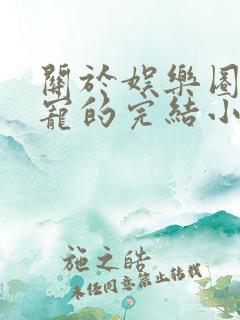 關於娛樂圈
寵的完結小
施之皓
未經同意禁止转載